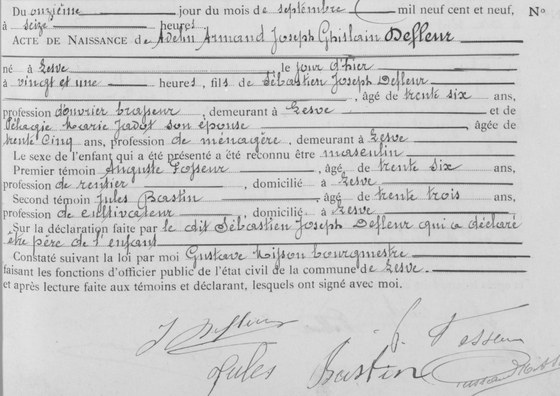 Du onzième jour du mois de septembre mil neuf cent et neuf, N°
à seize heures
ACTE DE NAISSANCE de Adelin Armand Joseph Ghislain Defleur
né à Lesve le jour d'hier
à vingt et une heures, fils de Sébastien Joseph Defleur
, âgé de trente six ans,
profession d'ouvrier brasseur, demeurant à Lesve et de
Pélagie Marie Jadot son épouse, âgée de
trente cinq ans, profession de ménagère, demeurant à Lesve
Le sexe de l'enfant qui a été présenté a été reconnu être masculin
Premier témoin Auguste Fosseur, âgé de trente six ans,
profession de rentier, domicilié à Lesve
Second témoin Jules Bastin, âgé de trente trois ans,
profession de cultivateur, domicilié à Lesve
Sur la déclaration faite par le dit Sébastien Joseph Defleur qui a déclaré
être père de l'enfant
Constaté suivant la loi par moi Gustave bourgmestre
faisant les fonctions d'officier public de l'état civil de la commune de Lesve.
et après lecture faite aux témoins et déclarant, lesquels ont signé avec moi.
J Defleur
Jules Bastin